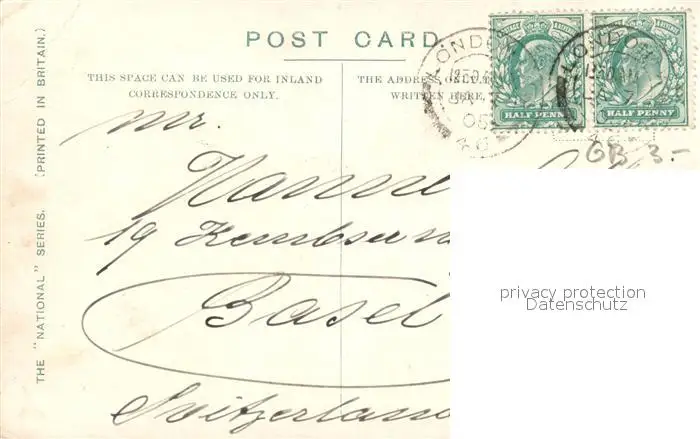 POST CARD
THIS SPACE CAN BE USED FOR INLAND
CORRESPONDENCE ONLY.
THE ADDRESS
WRITTEN HERE,
THE "NATIONAL" SERIES. (PRINTED IN BRITAIN.)
LONDON
LONDON
HALF PENNY
HALF PENNY
GB 3.-
Mr.
19
Basel
Switzerland
privacy protection
Datenschutz